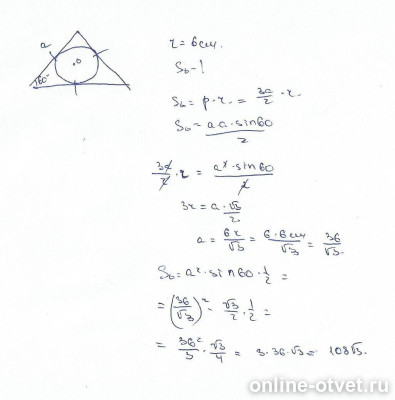 a
O
60°
r = 6 см.
S₆ - ?
S₆ = p · r = 3a/2 · r.
S₆ = a·a · sin60 / 2
3a/2 · r = a² · sin60 / 2
3r = a · √3/2
a = 6r/√3 = 6·6см/√3 = 36/√3.
S₆ = a² · sin60 · 1/2 =
= (36/√3)² · √3/2 · 1/2 =
= 36²/3 · √3/4 = 3·36·√3 = 108√3.
online-otvet.ru